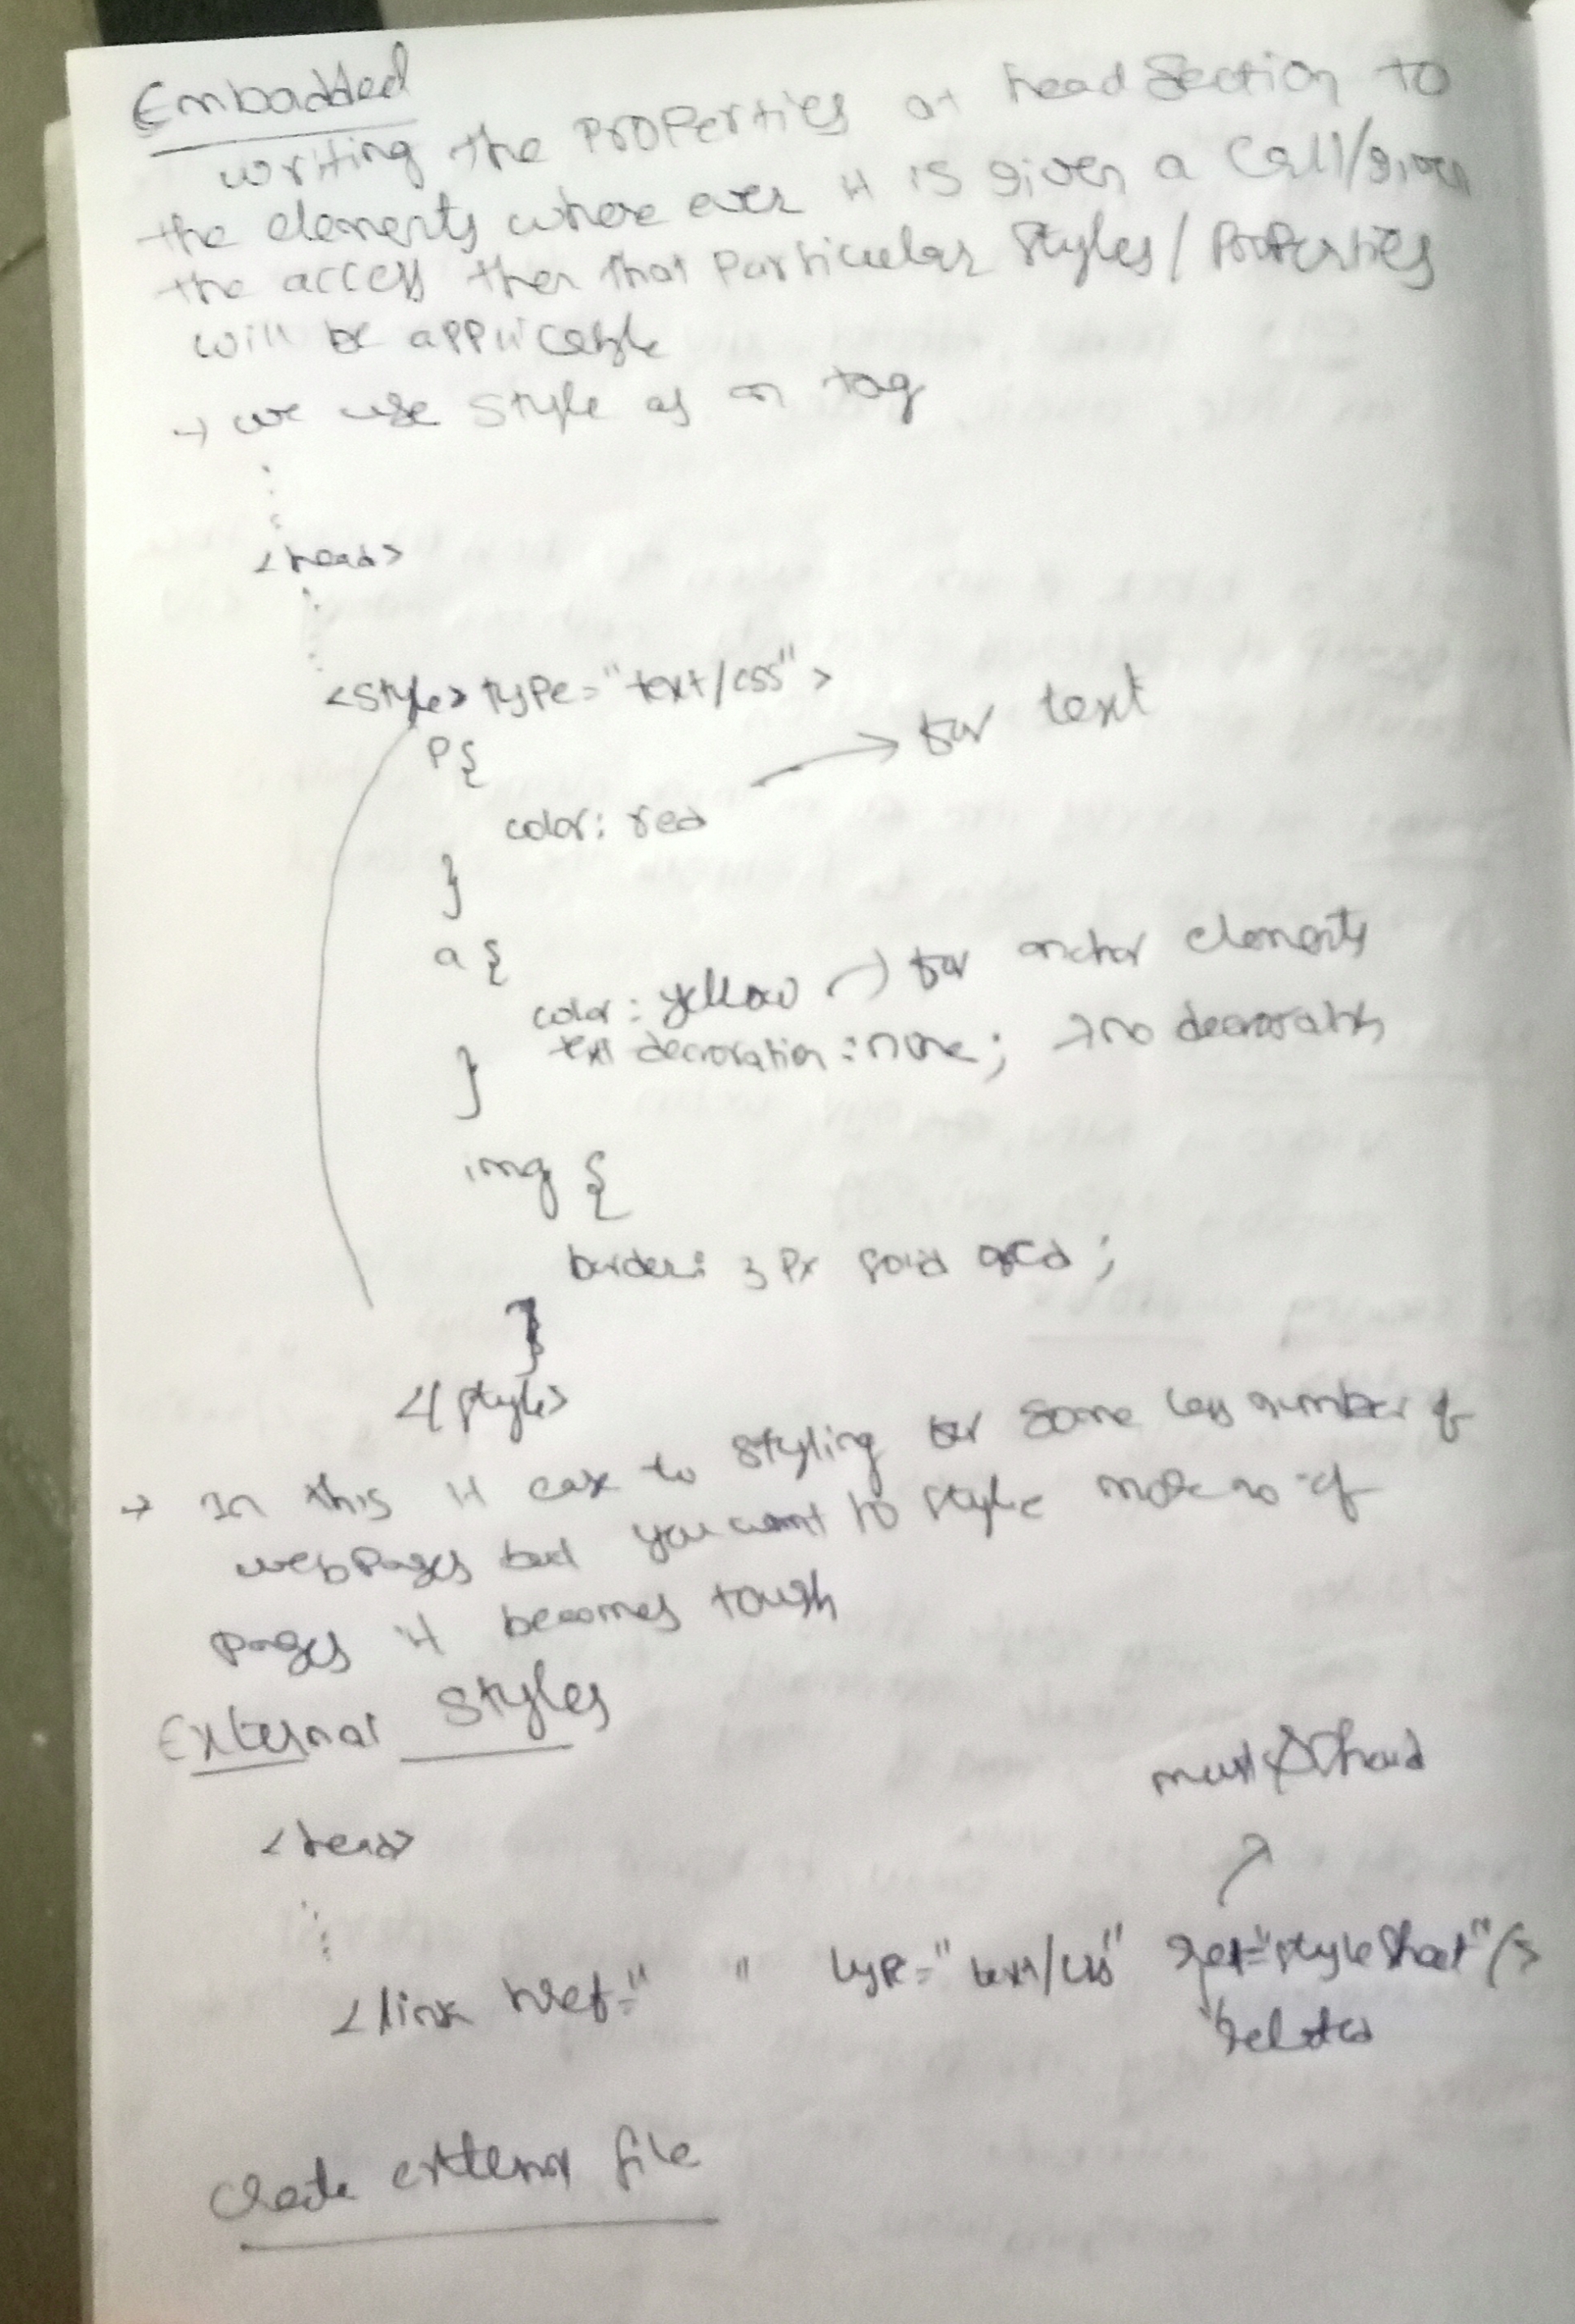 Embadded
writing the properties at head section to
the elements where ever it is given a call/given
the access then that particular styles/properties
will be applicable
→ we use style as an tag
<head>
<style> type="text/css">
P{
color: red → for text
}
a {
color: yellow → for anchor elements
text decroration : none; → no decroration
}
img {
border: 3px solid red ;
}
</style>
→ In this it easy to styling for some less number of
webpages but you want to style more no of
pages it becomes tough
External Styles
must should
<head>
<link href=" " type="text/css" rel="stylesheet"/>
related
Create external file